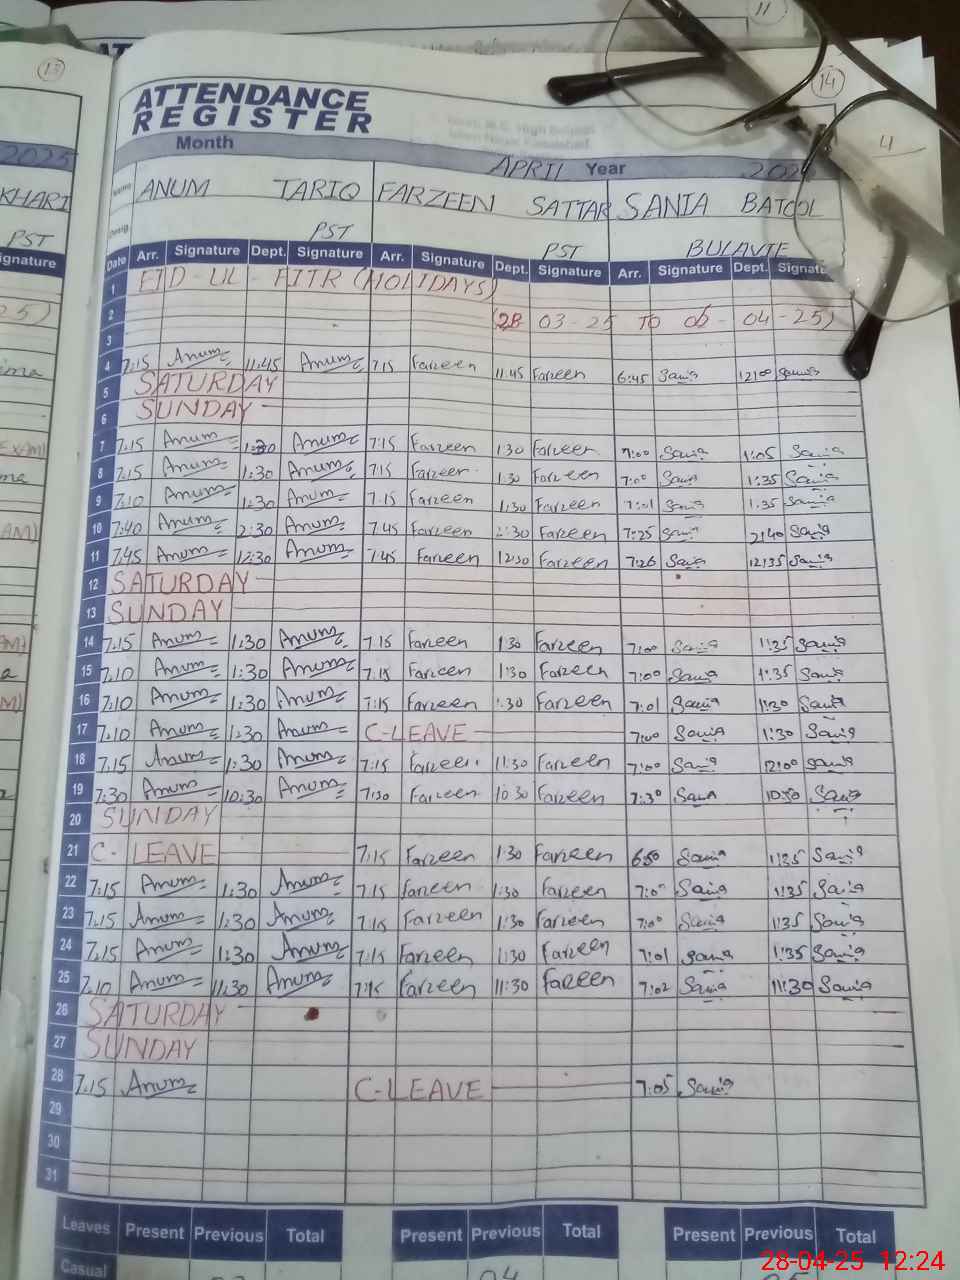 11
13
14
4
ATTENDANCE
REGISTER
2025
Month APRIL Year
KHARI
Name ANUM TARIQ FARZEEN SATTAR SANIA BATOOL
PST
Desig. PST PST BULAVIE
Signature
Date Arr. Signature Dept. Signature Arr. Signature Dept. Signature Arr. Signature Dept.
1 EID-UL-FITR (HOLIDAYS)
2 03-25 TO 05-04-25)
3
4 7:15 Anum 11:45 Anum 7:15 Farzeen 11:45 Farzeen 6:45 Sania 12:00 Sania
5 SATURDAY
6 SUNDAY
7 7.15 Anum 1:30 Anum 7:15 Farzeen 1:30 Farzeen 7:00 Sania 1:05 Sania
8 7.15 Anum 1:30 Anum 7:15 Farzeen 1:30 Farzeen 7:00 Sania 1:35 Sania
9 7:10 Anum 1:30 Anum 7:15 Farzeen 1:30 Farzeen 7:01 Sania 1:35 Sania
10 7:40 Anum 2:30 Anum 7:45 Farzeen 2:30 Farzeen 7:25 Sania 2:40 Sania
11 7:45 Anum 12:30 Anum 7:45 Farzeen 12:30 Farzeen 7:26 Sania 12:35 Sania
12 SATURDAY
13 SUNDAY
14 7:15 Anum 1:30 Anum 7:15 Farzeen 1:30 Farzeen 7:00 Sania 1:35 Sania
15 7:10 Anum 1:30 Anum 7:15 Farzeen 1:30 Farzeen 7:00 Sania 1:35 Sania
16 7:10 Anum 1:30 Anum 7:15 Farzeen 1:30 Farzeen 7:01 Sania 1:30 Sania
17 7:10 Anum 1:30 Anum C-LEAVE 7:00 Sania 1:30 Sania
18 7:15 Anum 1:30 Anum 7:15 Farzeen 11:30 Farzeen 7:00 Sania 12:00 Sania
19 7:30 Anum 10:30 Anum 7:30 Farzeen 10:30 Farzeen 7:30 Sania 10:30 Sania
20 SUNDAY
21 C-LEAVE 7:15 Farzeen 1:30 Farzeen 6:50 Sania 1:35 Sania
22 7:15 Anum 1:30 Anum 7:15 Farzeen 1:30 Farzeen 7:00 Sania 1:35 Sania
23 7:15 Anum 1:30 Anum 7:15 Farzeen 1:30 Farzeen 7:00 Sania 1:35 Sania
24 7:15 Anum 1:30 Anum 7:15 Farzeen 1:30 Farzeen 7:01 Sania 1:35 Sania
25 7:10 Anum 11:30 Anum 7:15 Farzeen 11:30 Fazeen 7:02 Sania 11:30 Sania
26 SATURDAY
27 SUNDAY
28 7:15 Anum C-LEAVE 7:05 Sania
29
30
31
Leaves Present Previous Total Present Previous Total Present Previous Total
Casual
28-04-25 12:24